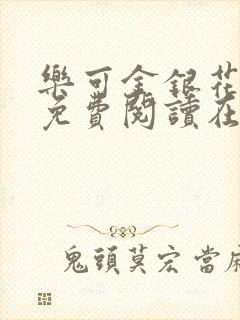 樂可金銀花
免費閱讀在
鬼頭莫宏當麻